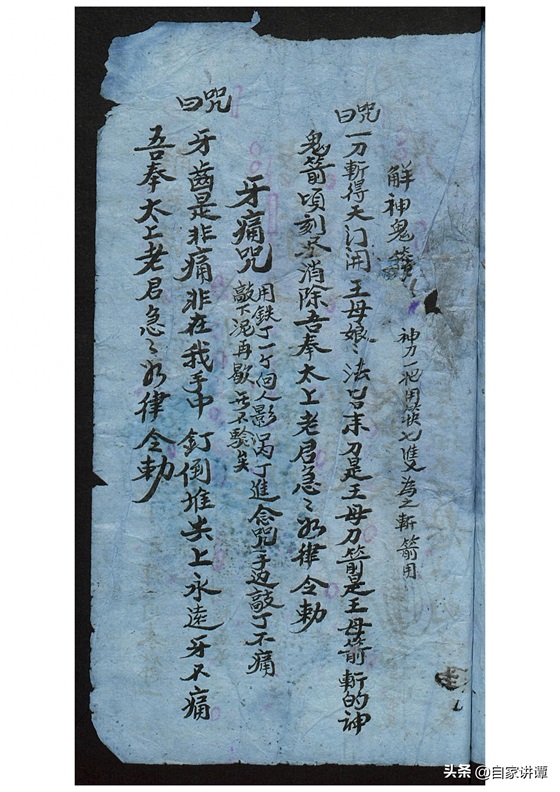 解神鬼箭
神刀一把用筷七隻為之斬箭用
咒曰
一刀斬得天门開王母娘〻法旨来刀是王母刀箭是王母箭斬的神
鬼箭頃刻尽消除吾奉太上老君急〻如律令勅
牙痛咒
用鉄丁一个向人影丁進念咒手边敲丁不痛
敲下泥再歇不驗矣
咒曰
牙齒是非痛非在我手中釘倒堆尖上永遠牙不痛
吾奉太上老君急〻如律令勅
头条 @自家讲谭